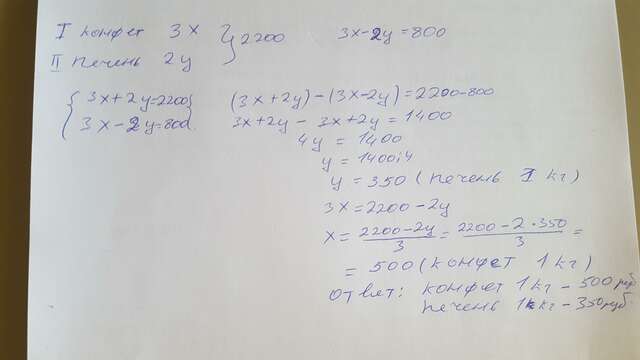 I конфет 3x } 2200 3x-2y=800
II печень 2y
{ 3x+2y=2200
3x-2y=800.
(3x+2y)-(3x-2y)=2200-800
3x+2y-3x+2y=1400
4y=1400
y=1400:4
y=350 (печень 1 кг)
3x=2200-2y
x=2200-2y/3=2200-2·350/3=
=500 (конфет 1 кг)
Ответ: конфет 1кг-500 руб
печень 1кг-350руб.